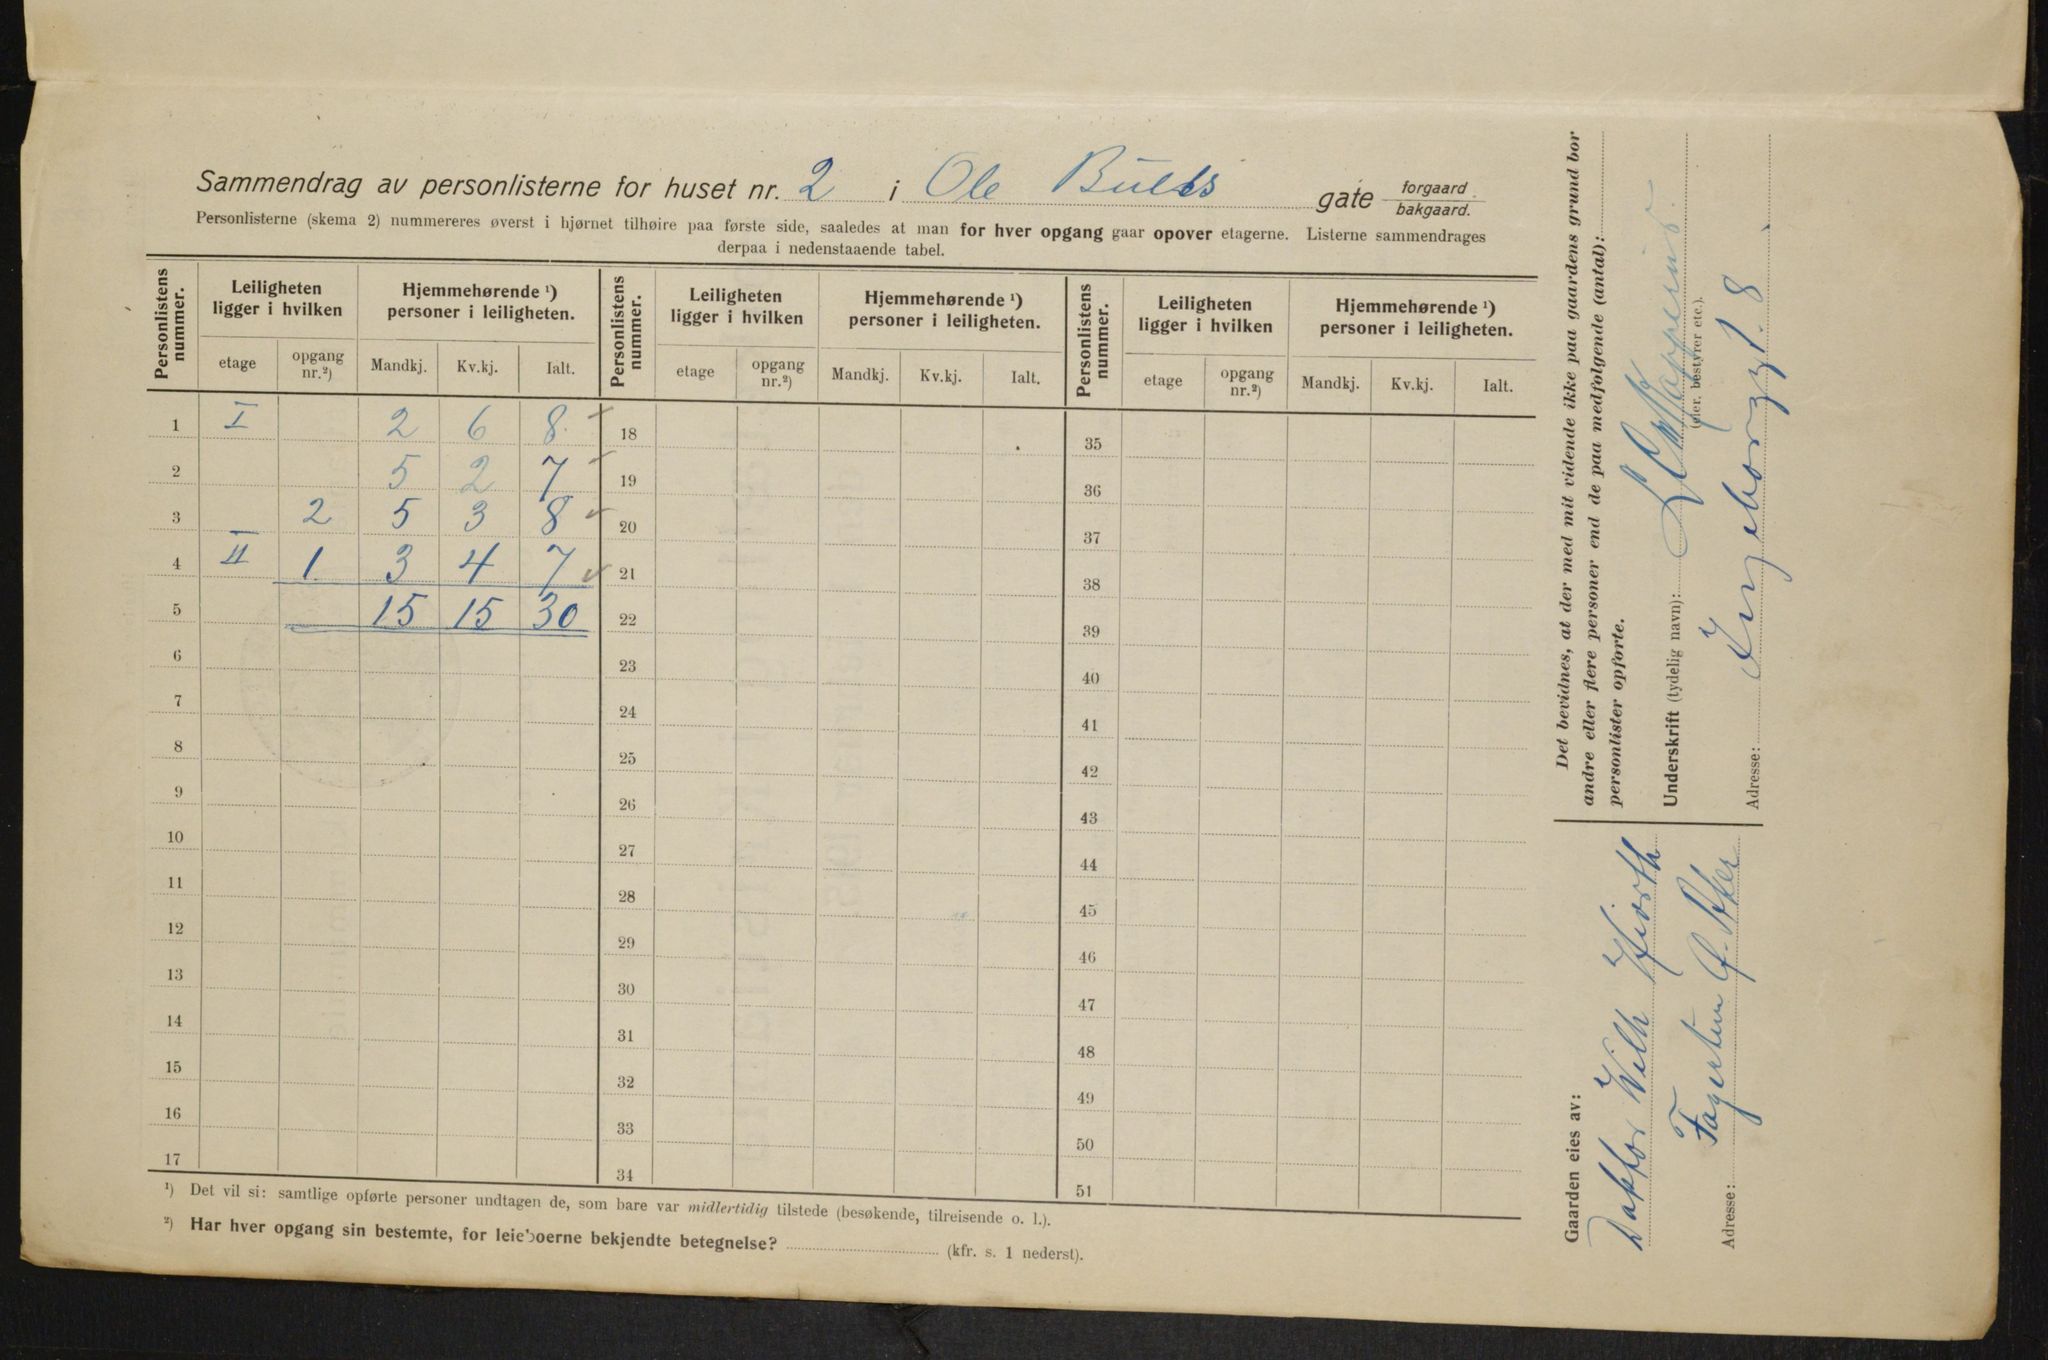 Sammendrag av personlisterne for huset nr. 2 i Ole Bulls gate forgaard / bakgaard.
Personlisterne (skema 2) nummereres øverst i hjørnet tilhøire paa første side, saaledes at man for hver opgang gaar opover etagerne. Listerne sammendrages
derpaa i nedenstaaende tabel.
Personlistens nummer. Leiligheten ligger i hvilken Hjemmehørende ¹) personer i leiligheten. Personlistens nummer. Leiligheten ligger i hvilken Hjemmehørende ¹) personer i leiligheten. Personlistens nummer. Leiligheten ligger i hvilken Hjemmehørende ¹) personer i leiligheten.
etage opgang nr.²) Mandkj. Kv.kj. Ialt. etage opgang nr.²) Mandkj. Kv.kj. Ialt. etage opgang nr.²) Mandkj. Kv.kj. Ialt.
1 I 2 6 8 18 35
2 5 2 7 19 36
3 2 5 3 8 20 37
4 II 1 3 4 7 21 38
5 15 15 30 22 39
6 23 40
7 24 41
8 25 42
9 26 43
10 27 44
11 28 45
12 29 46
13 30 47
14 31 48
15 32 49
16 33 50
17 34 51
¹) Det vil si: samtlige opførte personer undtagen de, som bare var midlertidig tilstede (besøkende, tilreisende o. l.).
²) Har hver opgang sin bestemte, for leieboerne bekjendte betegnelse? (kfr. s. 1 nederst).
Det bevidnes, at der med mit vidende ikke paa gaardens grund bor
andre eller flere personer end de paa medfølgende (antal):
personlister opførte.
Underskrift (tydelig navn):
(eier, bestyrer etc.).
Adresse: Ingeborggt. 8
Gaarden eies av:
Doktor Wilh Hiorth
Adresse: Ø. Aker